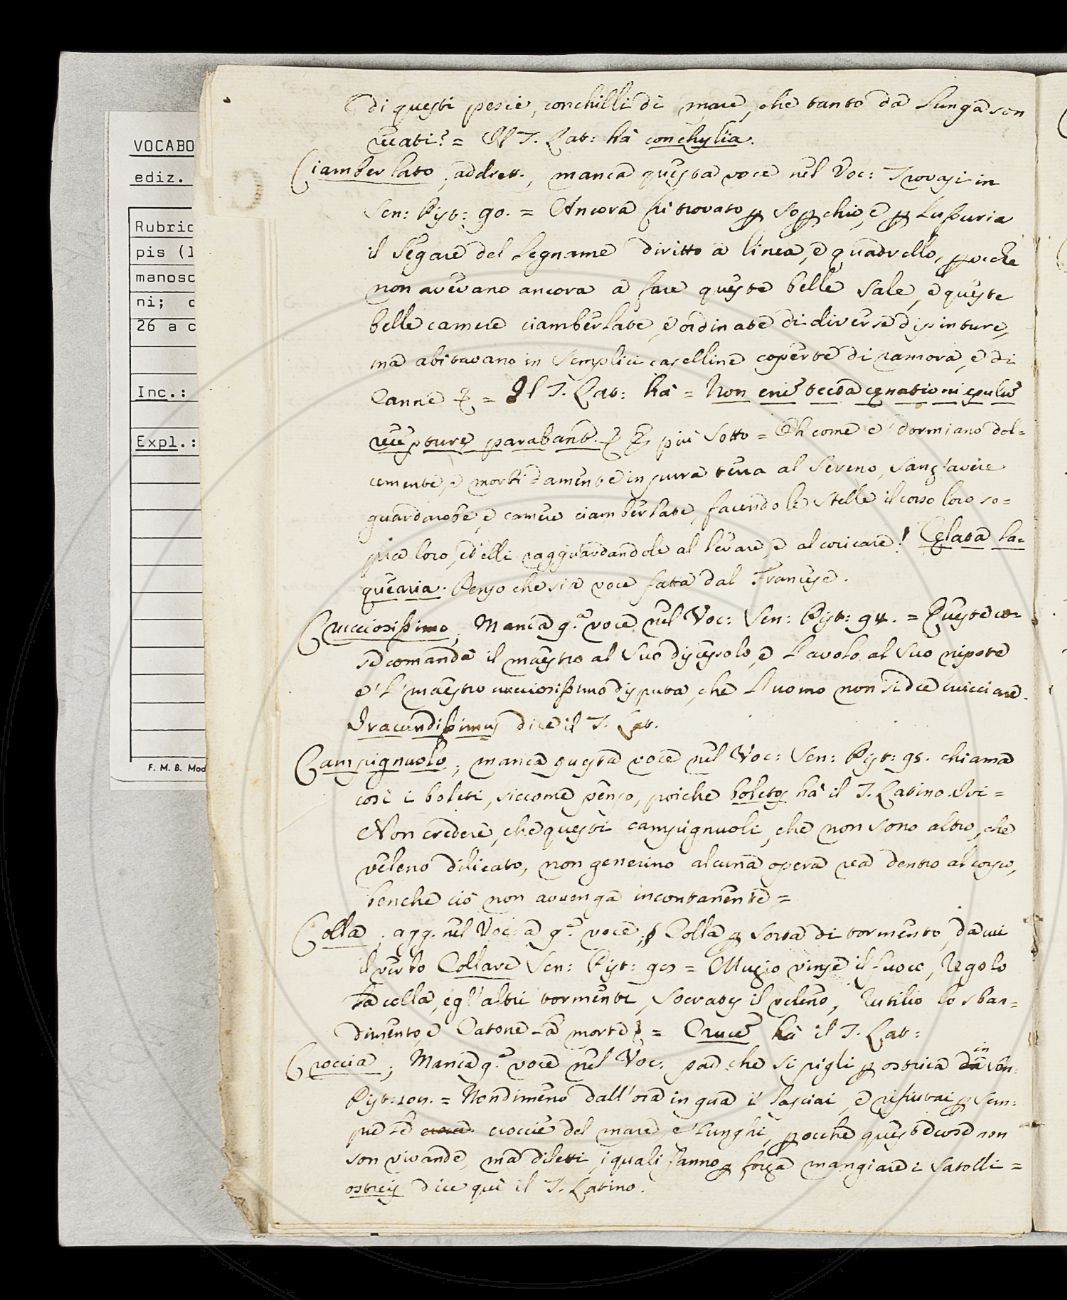 VOCABO
ediz.
Rubric
pis (1
manosc
ni; c
26 a c
Inc.:
Expl.:
F. M. B. Mod
C
di questi pescie, conchilli di mare, che tanto da lunga son
recati? = Il T. Lat: hà conchylia.
Ciamberlato, addiett., manca questa voce nel Voc: Trovasi in
Sen: Pist: 90. = Ancora fu trovato ꝑ soꝑchio, e ꝑ lussuria
il segare del legname diritto a linea, e quadrello, ꝑocche
non avevano ancora a fare queste belle sale, e queste
belle camere ciamberlate, e ordinate di diverse dipinture,
ma abitavano in semplici caselline coperte di ramora, e di
Canne &. = Il T. Lat: hà = Non enim tecta cenationi epulum
recepturę parabant. & E più sotto = Oh come e' dormiano dol=
cemente, e morbidamente in pura terra al sereno, sanz'avere
guardarobe, e camere ciamberlate, facendo le stelle il corso loro so=
pra loro, ed elli ragguardandole al levare, e al coricare! Celata la=
quearia. Penso che sia voce fatta dal Francese.
Crucciosissimo, Manca q.ᵃ voce nel Voc: Sen: Pist: 94. = Queste co=
se comanda il maestro al suo discepolo, e l'avolo al suo nipote
e 'l maestro crucciosissimo disputa, che l'uomo non si dee crucciare.
Iracundissimus dice il T. Lat.
Campignuolo, manca questa voce nel Voc: Sen: Pist: 95. chiama
così i boleti, siccome penso, poiche boletos hà il T. Latino. Ivi =
Non credere, che questi campignuoli, che non sono altro, che
veleno dilicato, non generino alcuna opera rea dentro al corpo,
benche ciò non avvenga incontanente =
Colla, agg. nel Voc: a q.ᵃ voce, Colla ꝑ sorta di tormento, da cui
il verbo Collare Sen: Pist: 98 = Muzio vinse il fuoco, Regolo
la colla, e gl'altri tormenti, Socrates il veleno, Rutilio lo sban=
dimento, e Catone la morte & = Cruce hà il T. Lat:
Croccia, Manca q.ᵃ voce nel Voc: par che si pigli ꝑ ostrica in Sen:
Pist: 109. = Nondimeno dall'ora in qua i' lasciai, e rifiutai ꝑ sem=
pre le croccie del mare e' funghi, ꝑocche queste cose non
son vivande, ma diletti, i quali fanno ꝑ forza mangiare i satolli =
ostreis dice quì il T. Latino.